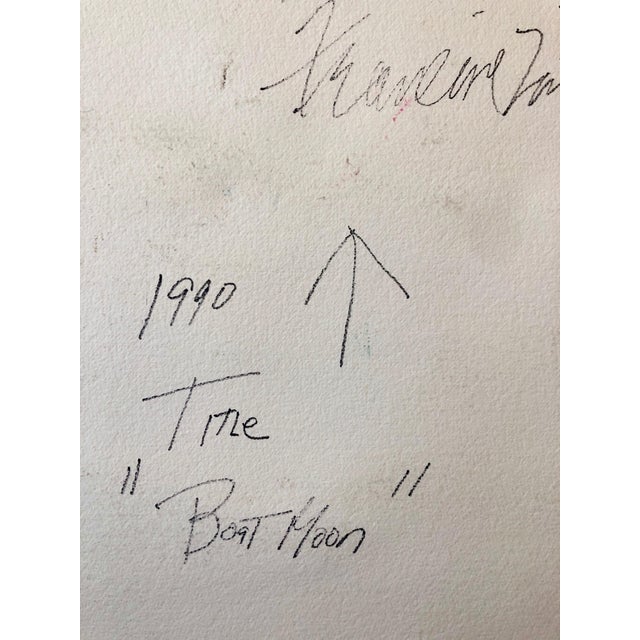 Francine
1990
Title
"Boat Moon"